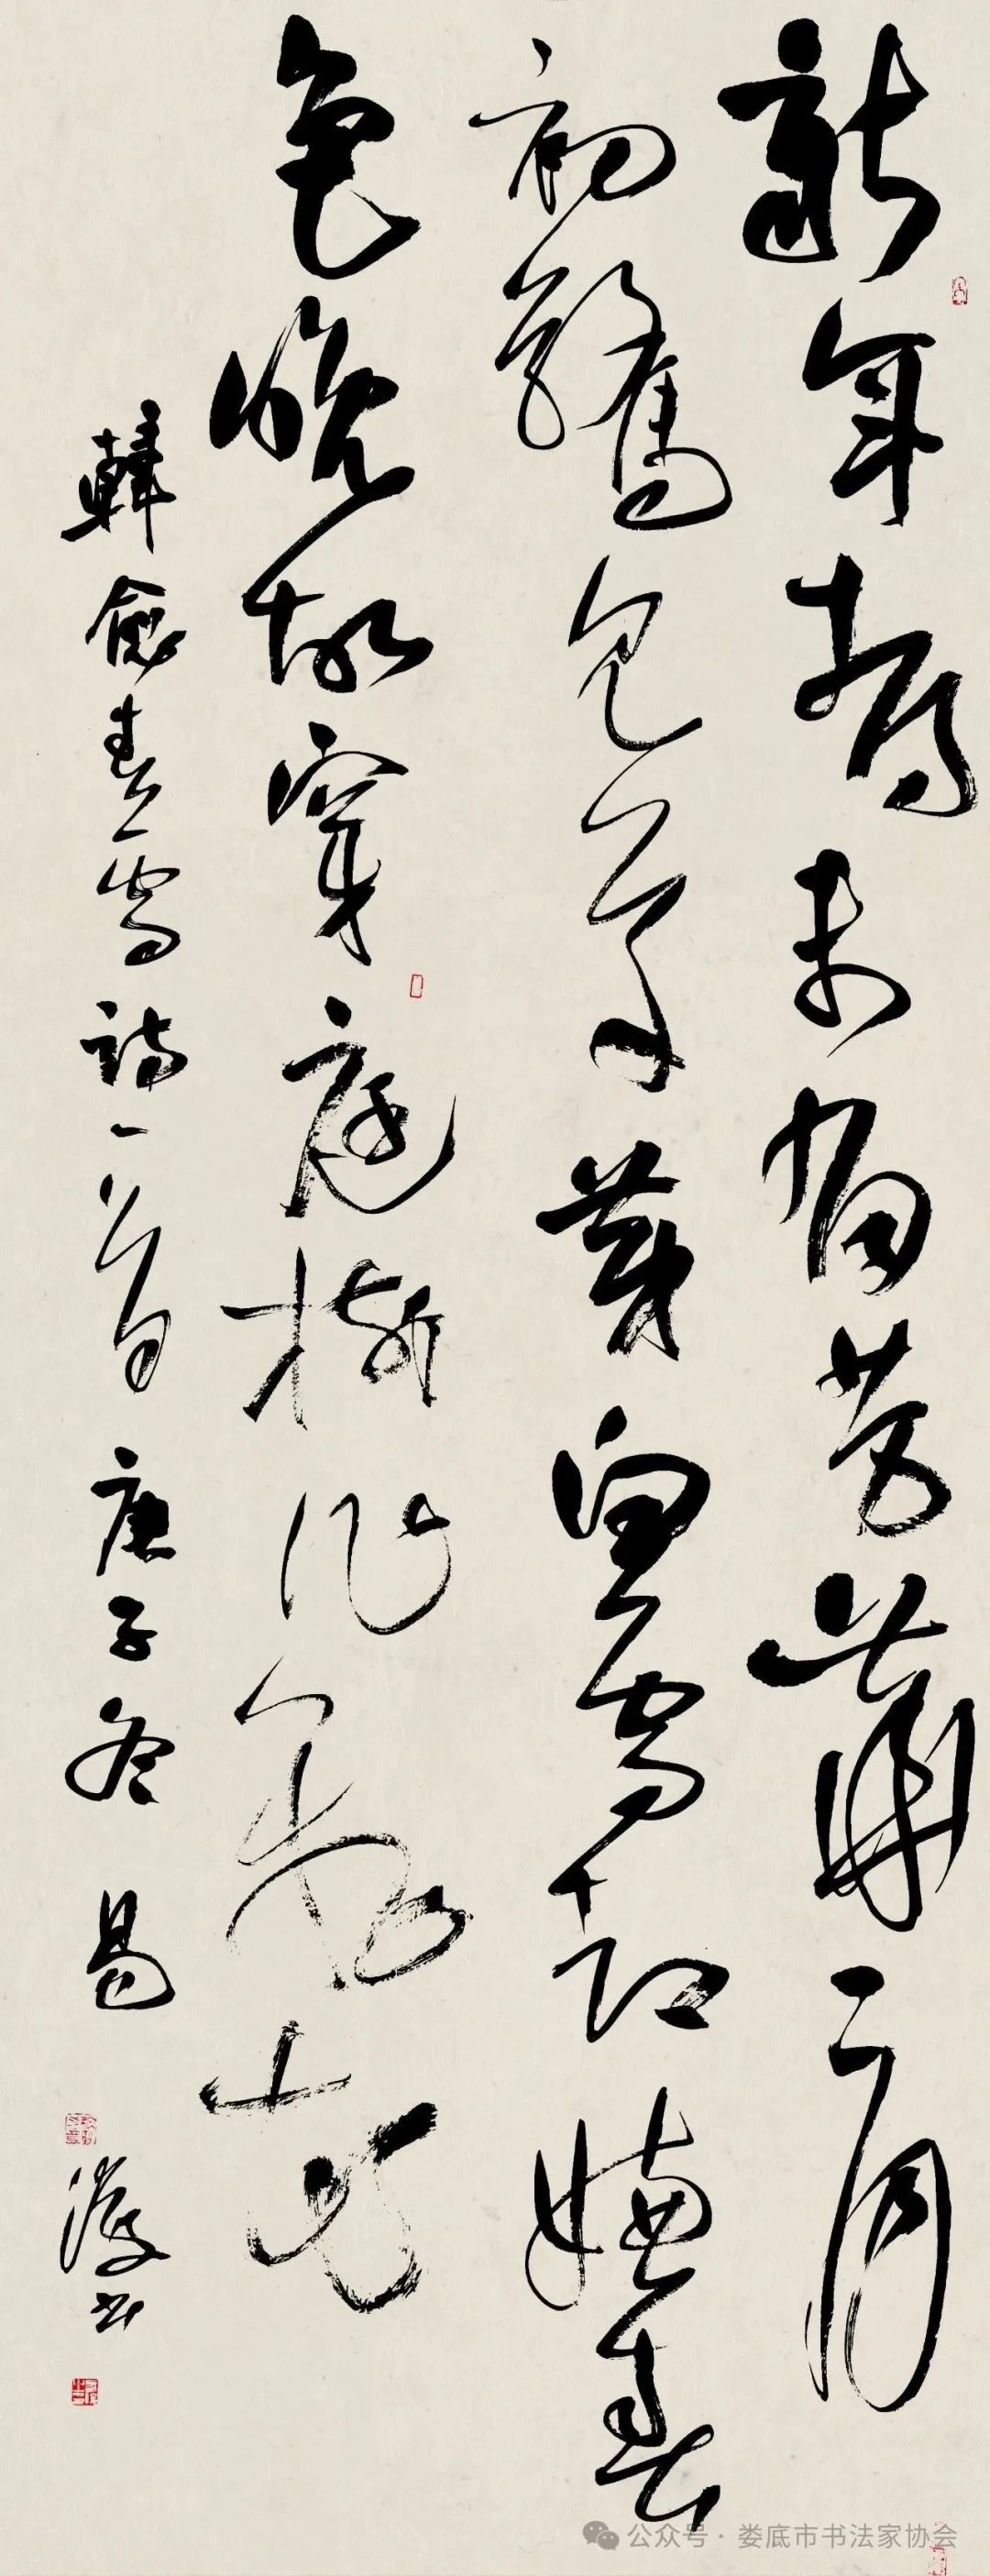 新年都未有芳華二月
初驚見草芽白雪却嫌春
色晚故穿庭樹作飛花
韓愈春雪詩一首 庚子冬 易書
公众号 · 娄底市书法家协会